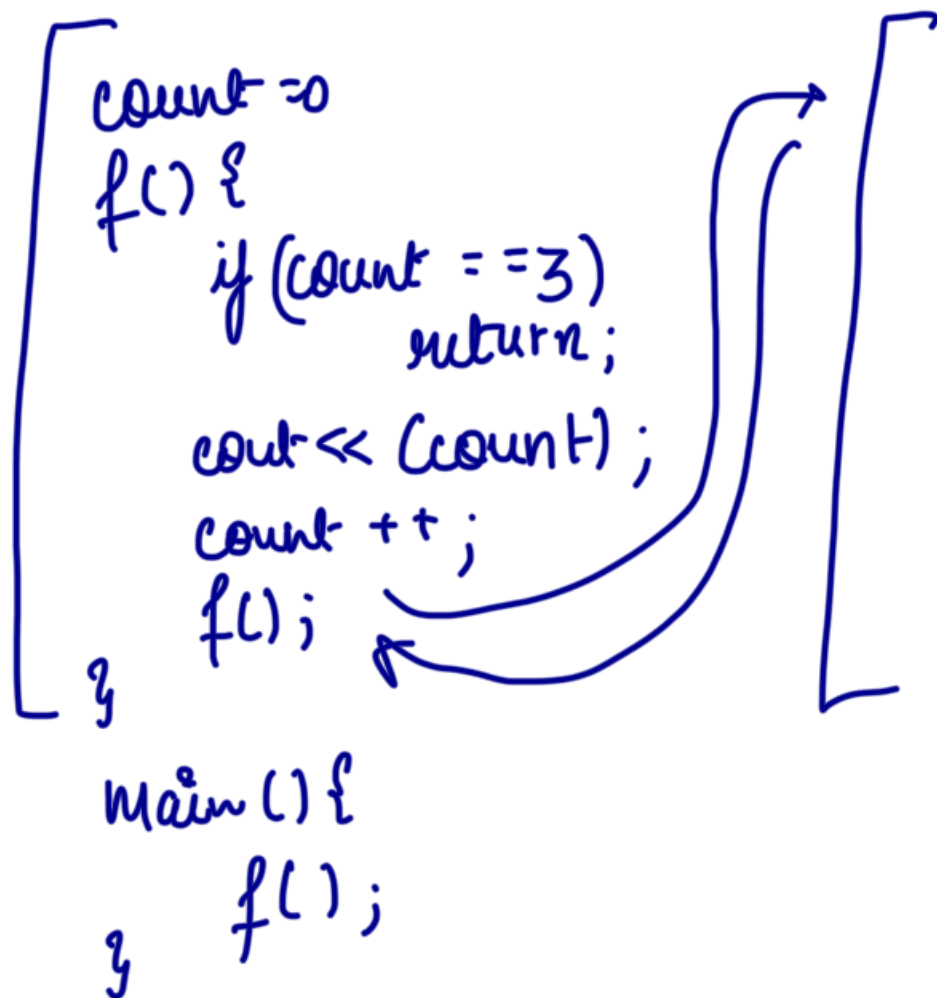 count = 0
f() {
if (count == 3)
return;
cout << (count);
count ++;
f();
}
main() {
f();
}